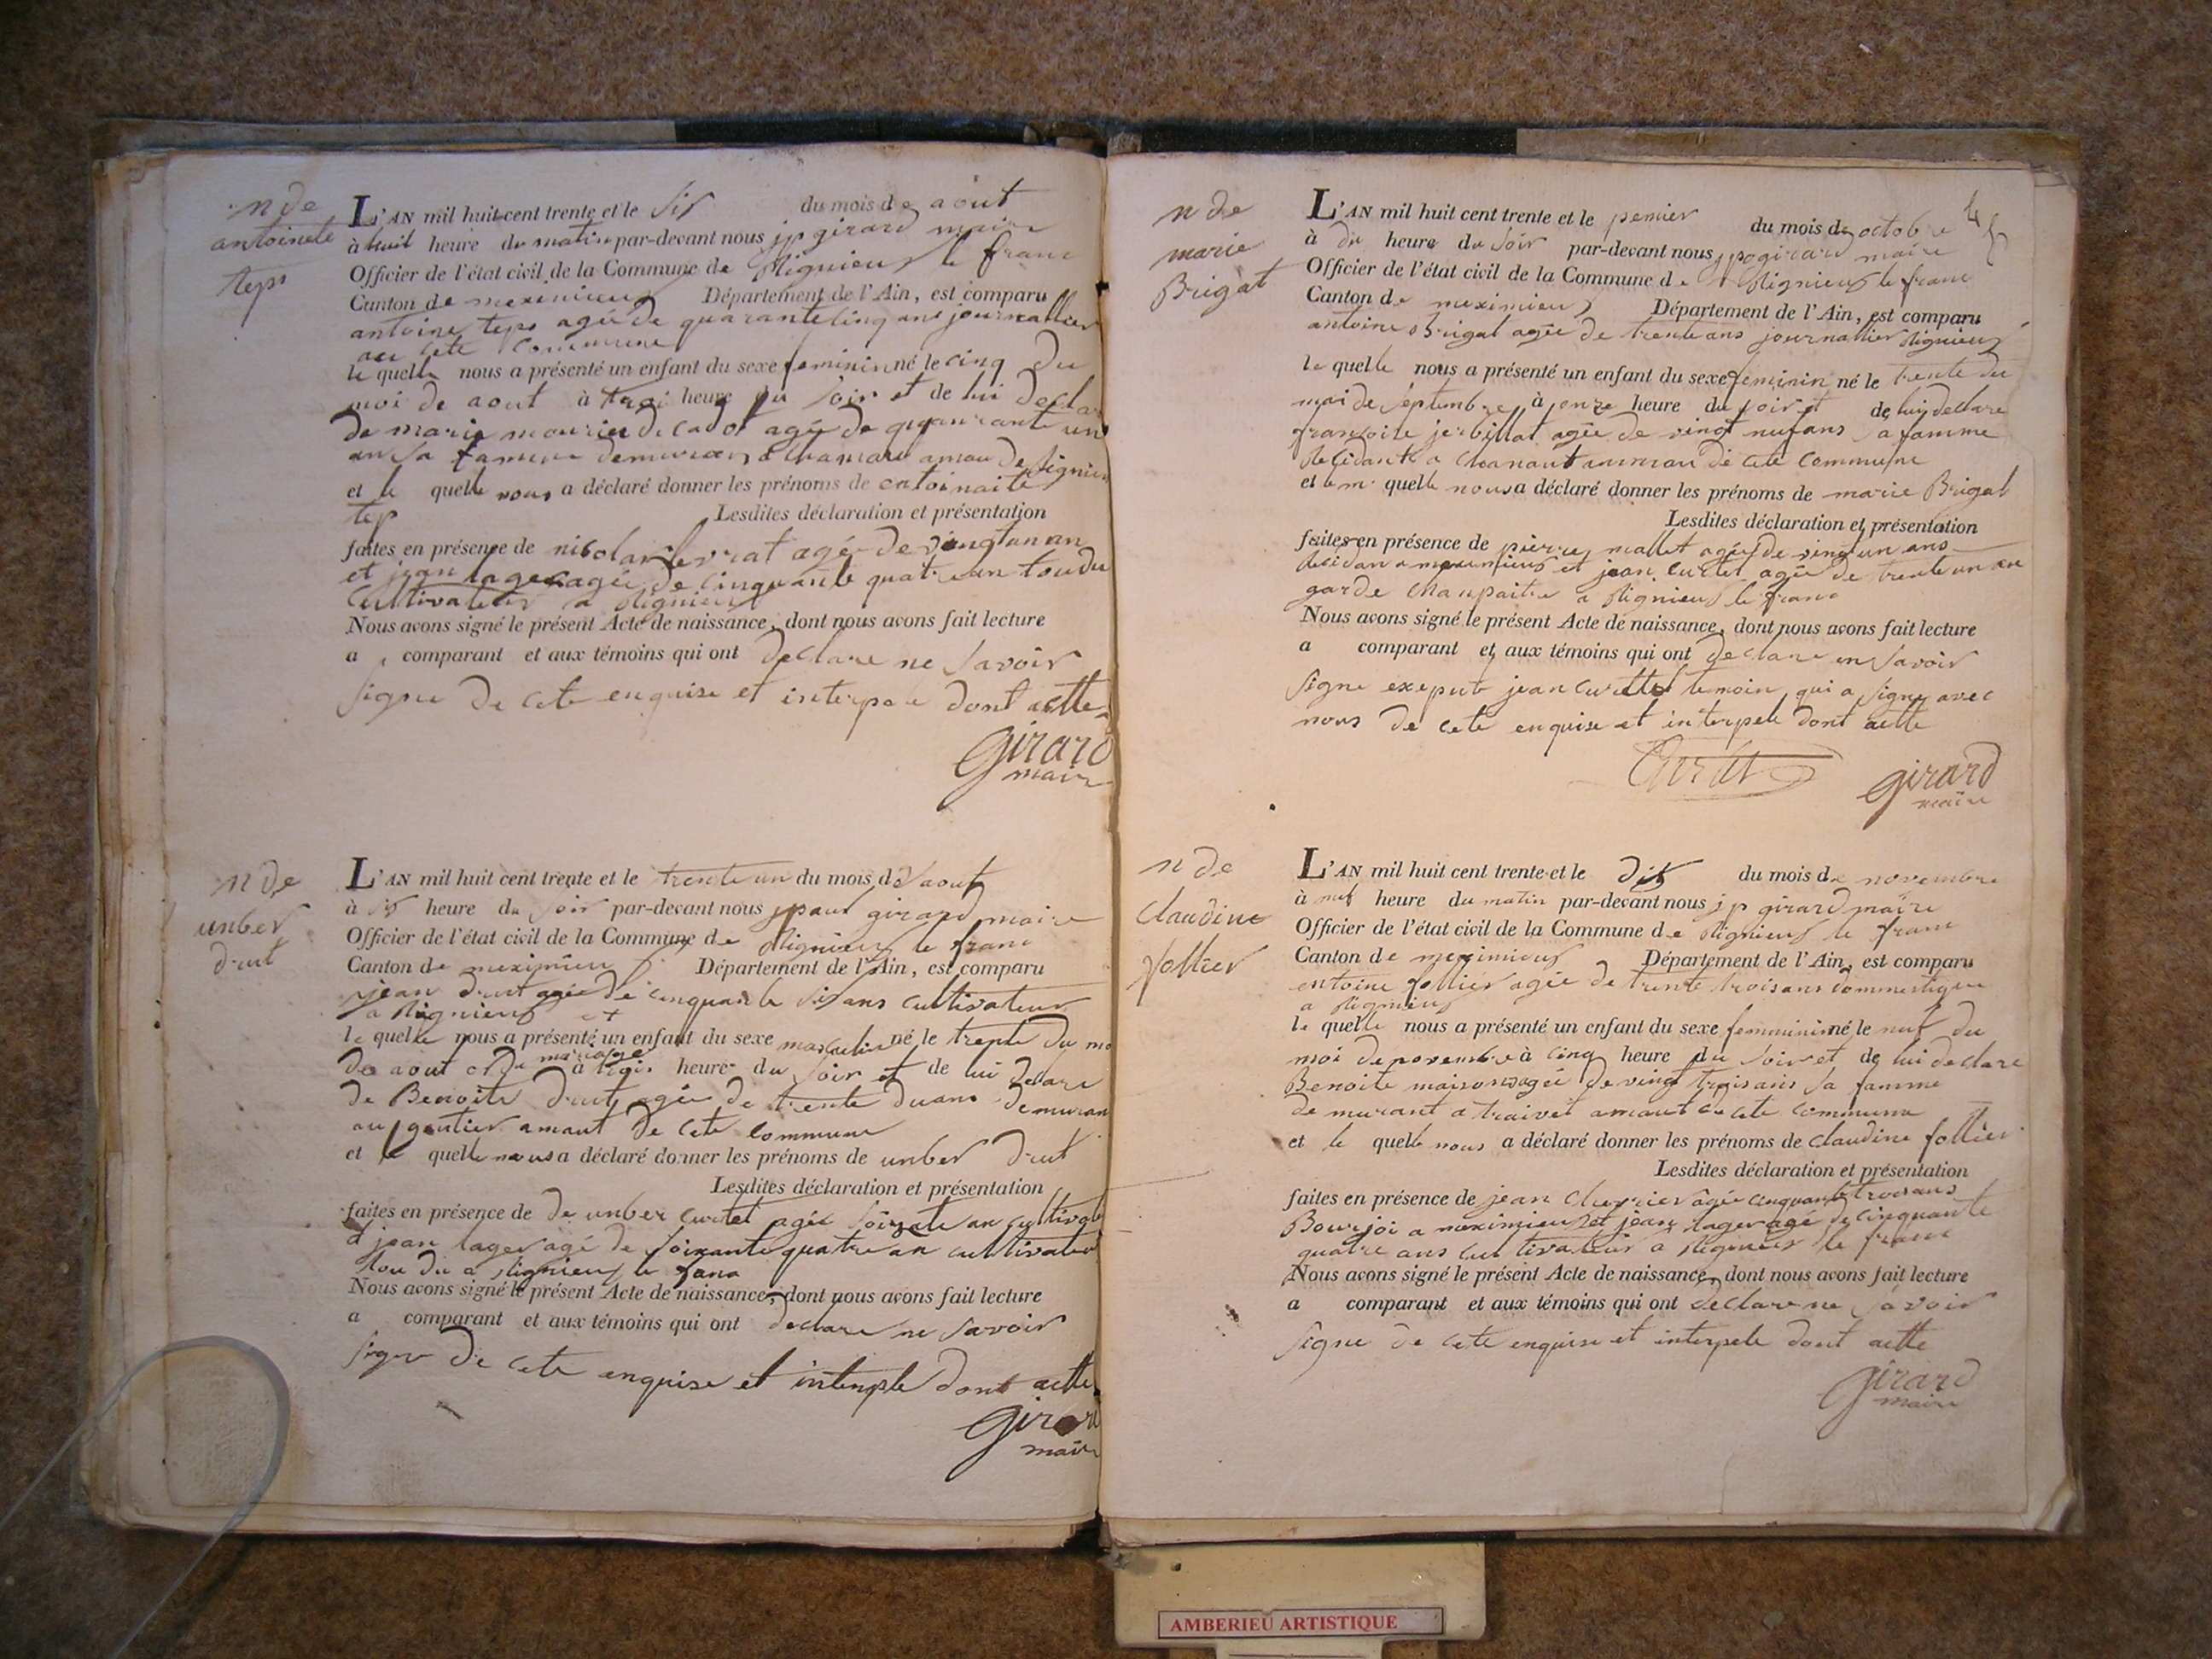 n de
antoinete
teps
L'AN mil huit cent trente et le six du mois de aout
à huit heure du matin par-devant nous jp girard maire
Officier de l'état civil de la Commune de Rignieux le franc
Canton de meximieux Département de l'Ain, est comparu
antoine teps agée de quarante cinq ans journallier
cete commune
le quelle nous a présenté un enfant du sexe feminin né le cinq du
moi de aout à troi heure du soir et de lui declare
de marie agée de
an sa famme a de Rignieux
et le quelle nous a déclaré donner les prénoms de
tep Lesdites déclaration et présentation
faites en présence de agée de vingt un an
et jean lager agée de cinquante quatre an tou du
cultivateur a Rignieux
Nous avons signé le présent Acte de naissance, dont nous avons fait lecture
a comparant et aux témoins qui ont declare ne savoir
signe de cete enquise et interpele dont actte
girard
maire
n de
unber
drut
L'AN mil huit cent trente et le trente un du mois de aout
à six heure du soir par-devant nous jpaul girard maire
Officier de l'état civil de la Commune de Rignieux le franc
Canton de meximieu Département de l'Ain, est comparu
jean drut agée de cinquante six ans cultivateur
a Rignieux et
le quelle nous a présenté un enfant du sexe masculin né le trente du mo
de aout et du mariage à trois heure du soir et de lui declare
de Benoite drut agée de trente du ans demuran
au gautier amaut de cete commune
et le quelle nous a déclaré donner les prénoms de unber drut
Lesdites déclaration et présentation
faites en présence de de unber curtet agée soixante an
jean lager agé de soixante quatre an cultivateur
tou du a Rignieux le franc
Nous avons signé le présent Acte de naissance, dont nous avons fait lecture
a comparant et aux témoins qui ont declare ne savoir
signe de cete enquise et interpele dont actte
girard
maire
n de
marie
Brigat
L'AN mil huit cent trente et le pemier du mois de octobre
à heure du soir par-devant nous girard maire
Officier de l'état civil de la Commune de Rignieux le franc
Canton de meximieux Département de l'Ain, est comparu
antoine Brigat agée de trente ans journallier Rignieux
le quelle nous a présenté un enfant du sexe feminin né le trente du
moi de septembre à onze heure du soir et de lui declare
françoise jerbillat agée de vingt neuf ans sa famme
residante a de cete commune
et le quelle nous a déclaré donner les prénoms de marie Brigat
Lesdites déclaration et présentation
faites en présence de pierre mallet agée de vingt un ans
residan a meximieux et jean curtet agée de trente un an
garde a Rignieux le franc
Nous avons signé le présent Acte de naissance, dont nous avons fait lecture
a comparant et aux témoins qui ont declare ne savoir
signe exepute jean curttet temoin qui a signe avec
nous de cete enquise et interpele dont actte
girard
maire
n de
claudine
follier
L'AN mil huit cent trente et le dix du mois de novembre
à neuf heure du matin par-devant nous jp girard maire
Officier de l'état civil de la Commune de Rignieux le franc
Canton de meximieux Département de l'Ain, est comparu
entoine follier agée de trente trois ans dommestique
a Rignieux
le quelle nous a présenté un enfant du sexe femminin né le neuf du
moi de novembre à cinq heure du soir et de lui declare
Benoite maison agée de vingt trois ans sa famme
de murant a traivet amaut de cete commune
et le quelle nous a déclaré donner les prénoms de claudine follier
Lesdites déclaration et présentation
faites en présence de jean agée cinquante trois ans
Bourjoi a meximieux et jean lager agé de cinquante
quatre ans cultivateur a Rignieux le franc
Nous avons signé le présent Acte de naissance, dont nous avons fait lecture
a comparant et aux témoins qui ont declare ne savoir
signe de cete enquise et interpele dont actte
girard
maire
AMBERIEU ARTISTIQUE